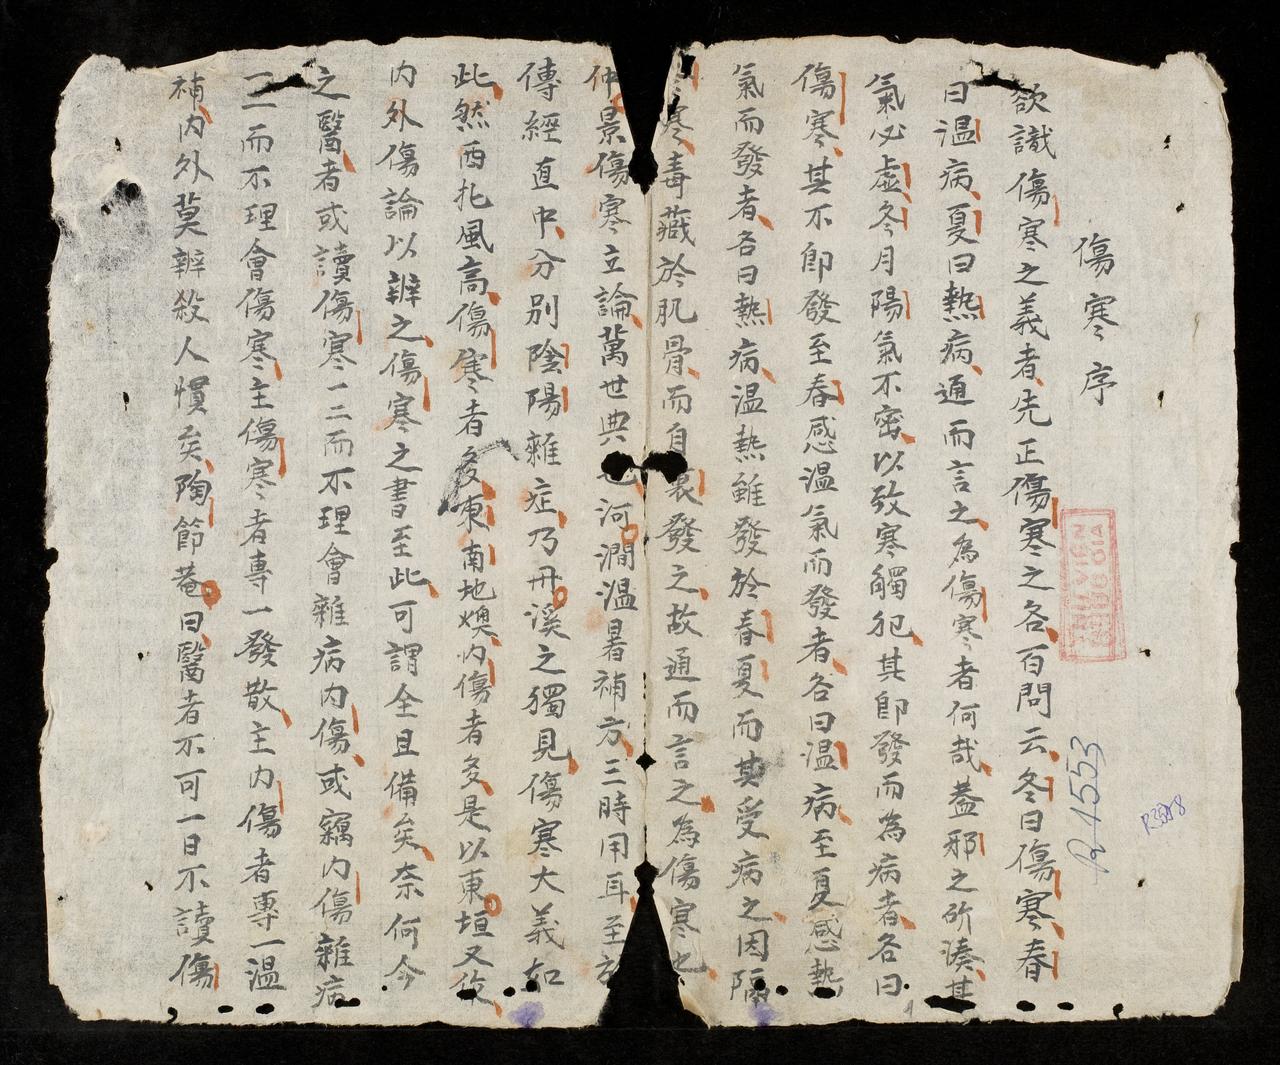 傷寒序
欲識傷寒之義者先正傷寒之各百問云冬曰傷寒春
曰温病夏曰熱病通而言之為傷寒者何哉蓋邪之所湊其
氣必虛冬月陽氣不密以致寒觸犯其即發而為病者各曰
傷寒其不即發至春感温氣而發者各曰温病至夏感熱
氣而發者各曰熱病温熱雖發於春夏而其受病之因隔
寒毒藏於肌骨而自裏發之故通而言之為傷寒也
仲景傷寒立論萬世典也河澗温暑補方三時用耳至於
傳經直中分別陰陽雜症乃丹溪之獨見傷寒大義如
此然西北風高傷寒者多東南地燠內傷者多是以東垣又俊
內外傷論以辨之傷寒之書至此可謂全且備矣奈何今
之醫者或讀傷寒一二而不理會雜病內傷或竊內傷雜病
一二而不理會傷寒主傷寒者專一發散主內傷者專一温
補內外莫辨殺人慣矣陶節菴曰醫者不可一日不讀傷
THƯ VIEN
R 45553
R3518